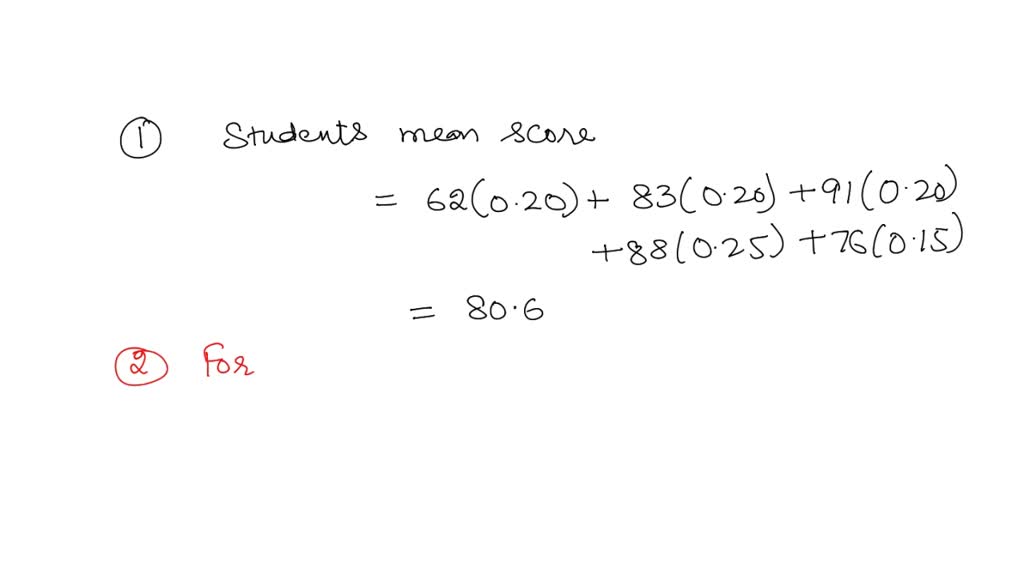 ① Students mean score
= 62(0.20) + 83(0.20) + 91(0.20)
+88(0.25) + 76(0.15)
= 80.6
② For